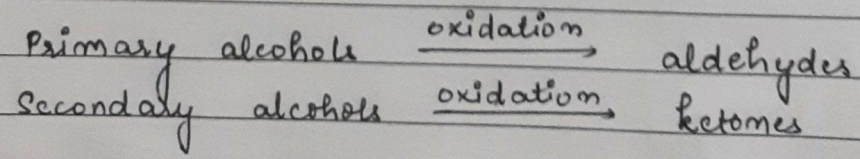 Primary alcohols oxidation aldehydes
Secondary alcohols oxidation ketones